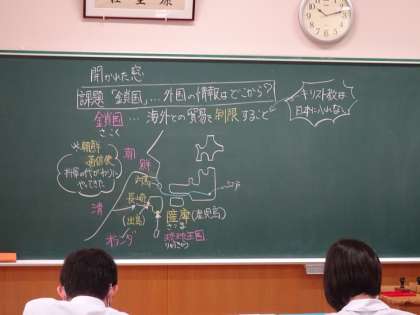 開かれた窓
課題「鎖国」…外国の情報はどこから?
キリスト教は
日本に入れない
鎖国 … 海外との貿易を制限すること
さこく
朝鮮
通信使
やってきた
朝鮮
対馬
清
長崎
(出島)
オランダ
薩摩(鹿児島)
さつま
琉球王国
りゅうきゅう
江戸